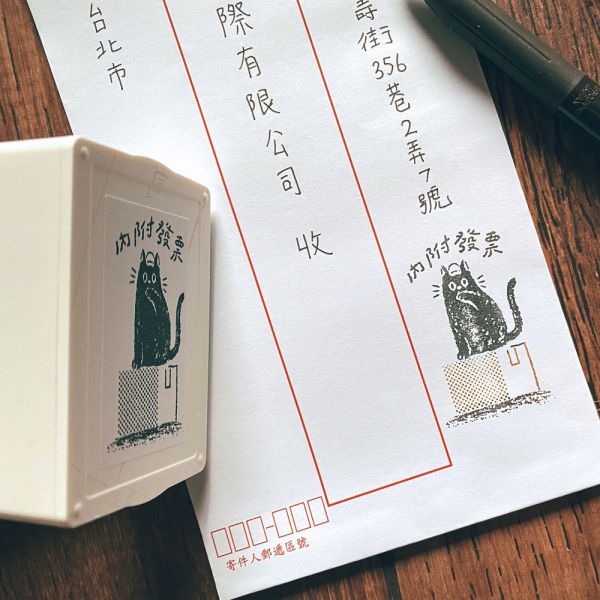 壽街356巷2弄7號
際有限公司 收
台北市
內附發票
內附發票
寄件人郵遞區號